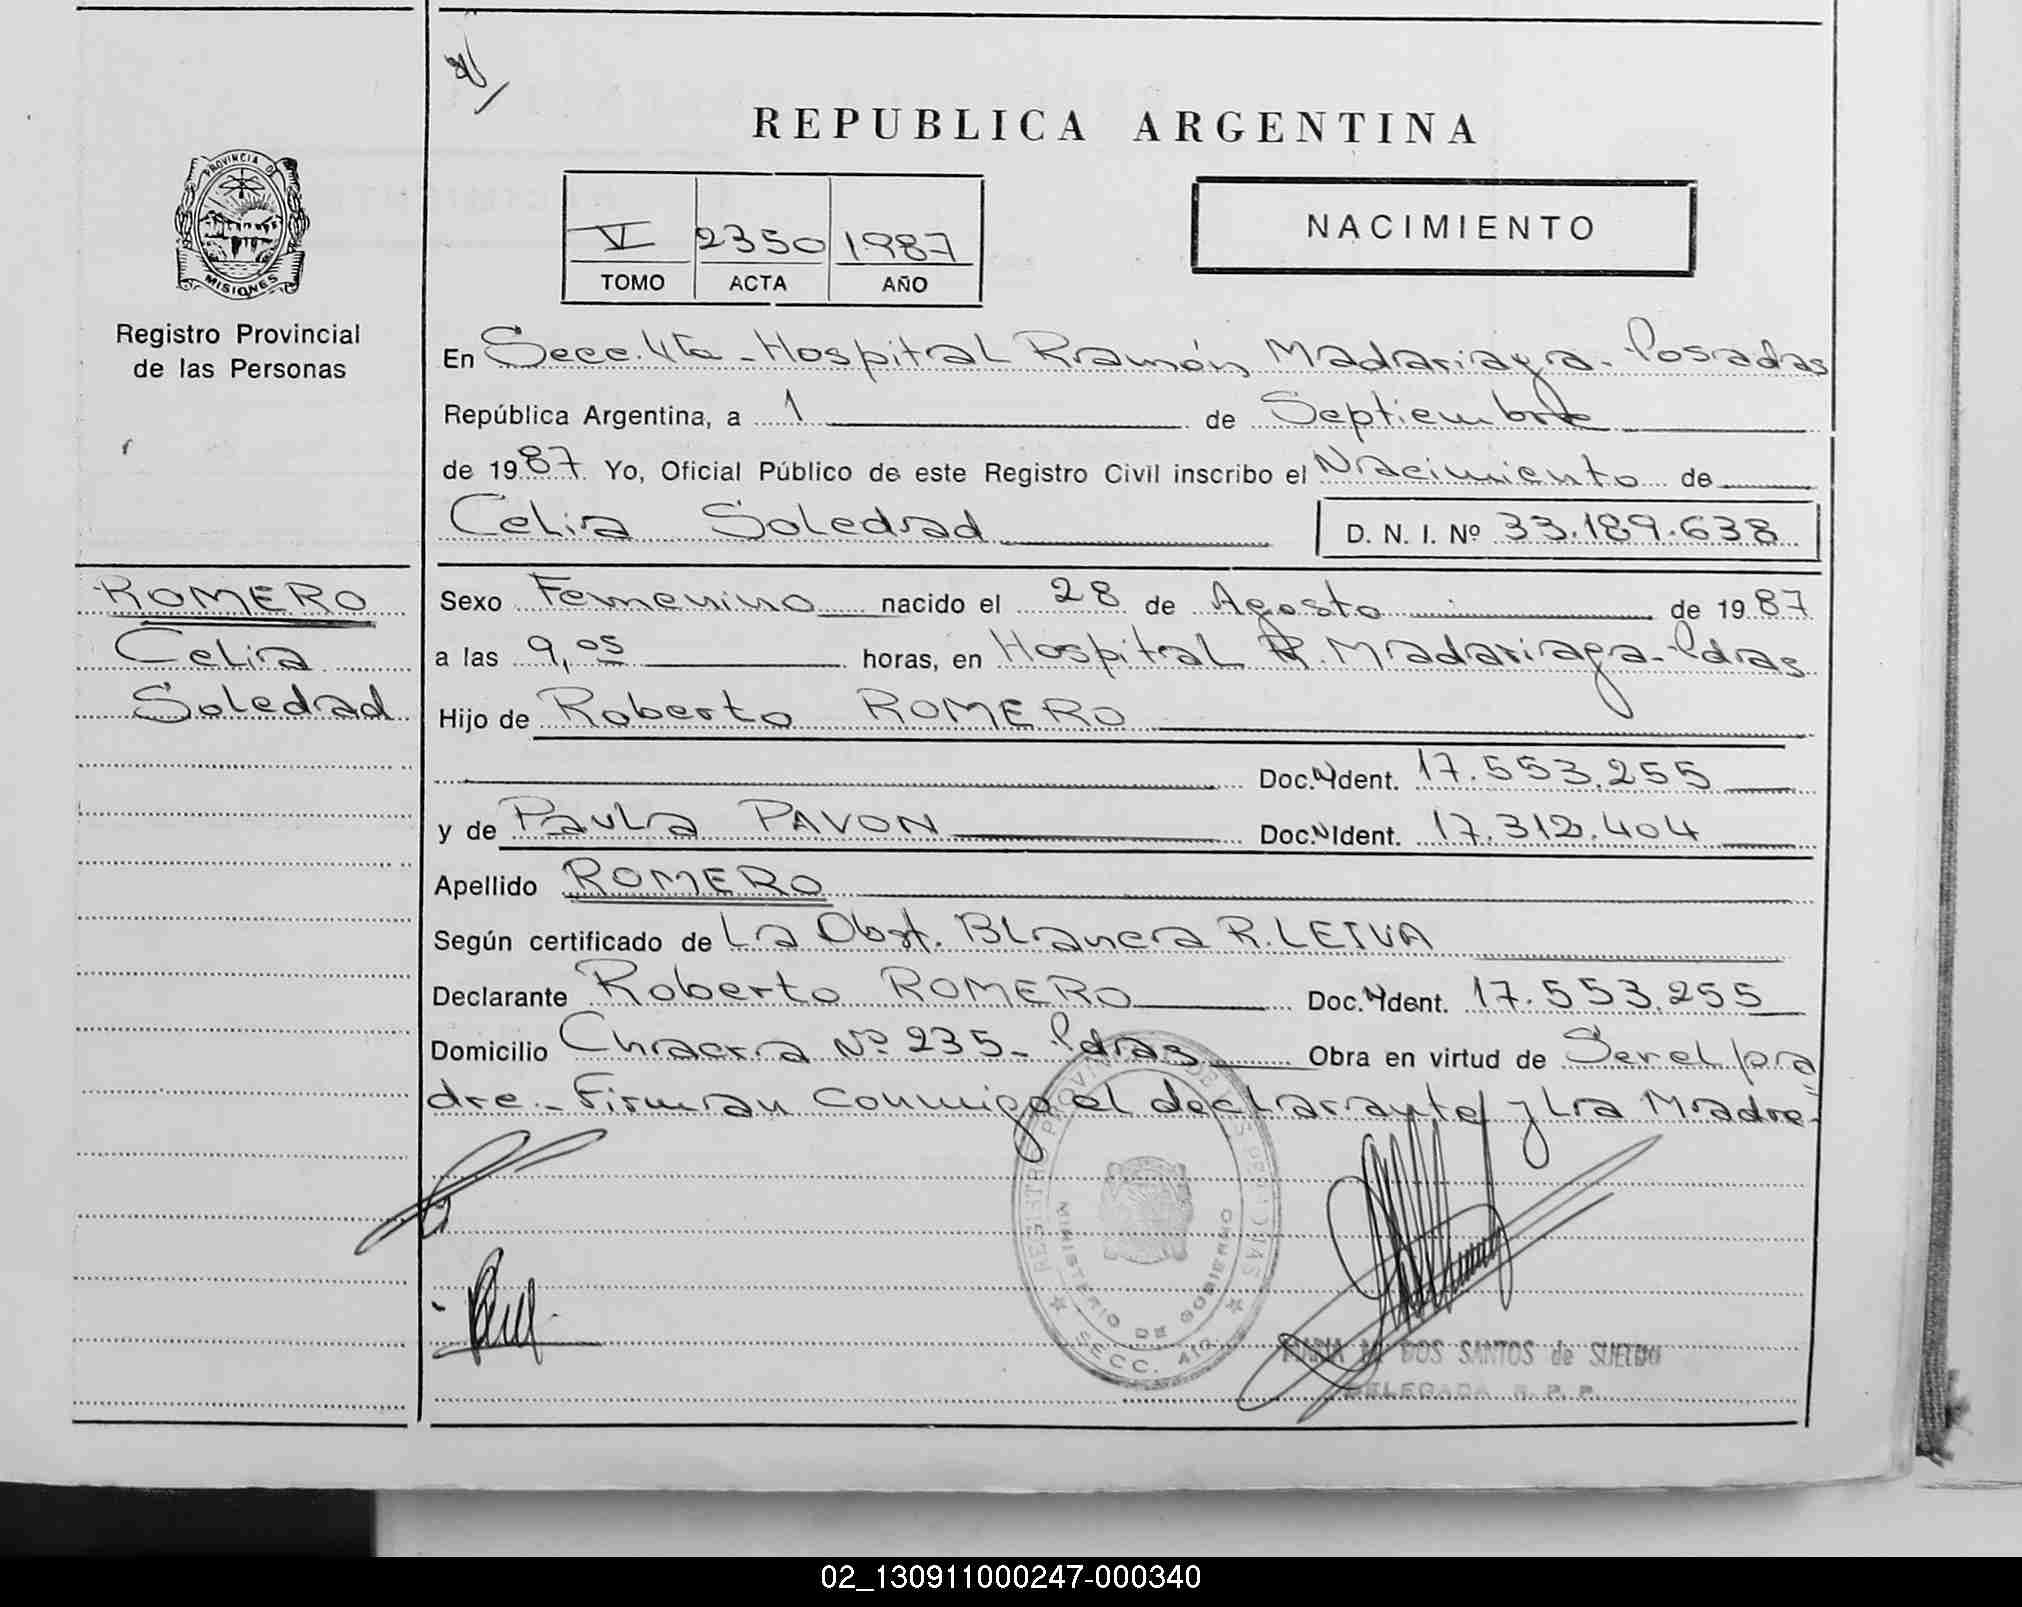 REPUBLICA ARGENTINA
PROVINCIA DE
MISIONES
Registro Provincial
de las Personas
V 2350 1987
TOMO ACTA AÑO
NACIMIENTO
En Secc. 4ta - Hospital Ramón Madariaga - Posadas
República Argentina, a 1 de Septiembre
de 1987 Yo, Oficial Público de este Registro Civil inscribo el Nacimiento de
Celia Soledad D. N. I. Nº 33.189.638
ROMERO
Celia
Soledad
Sexo Femenino nacido el 28 de Agosto de 1987
a las 9,05 horas, en Hospital R. Madariaga - Pdas
Hijo de Roberto ROMERO
Doc. Ident. 17.553.255
y de Paula PAVON Doc. Ident. 17.312.404
Apellido ROMERO
Según certificado de La Obst. Blanca R. LEIVA
Declarante Roberto ROMERO Doc. Ident. 17.553.255
Domicilio Chacra Nº 235 - Pdas Obra en virtud de Ser el pa
dre.- Firman conmigo el declarante y la Madre.-
REGISTRO PROVINCIAL DE LAS PERSONAS
MINISTERIO DE GOBIERNO
SECC. 4ta.
DOS SANTOS de SUELDO
DELEGADA R. P. P.
02_130911000247-000340